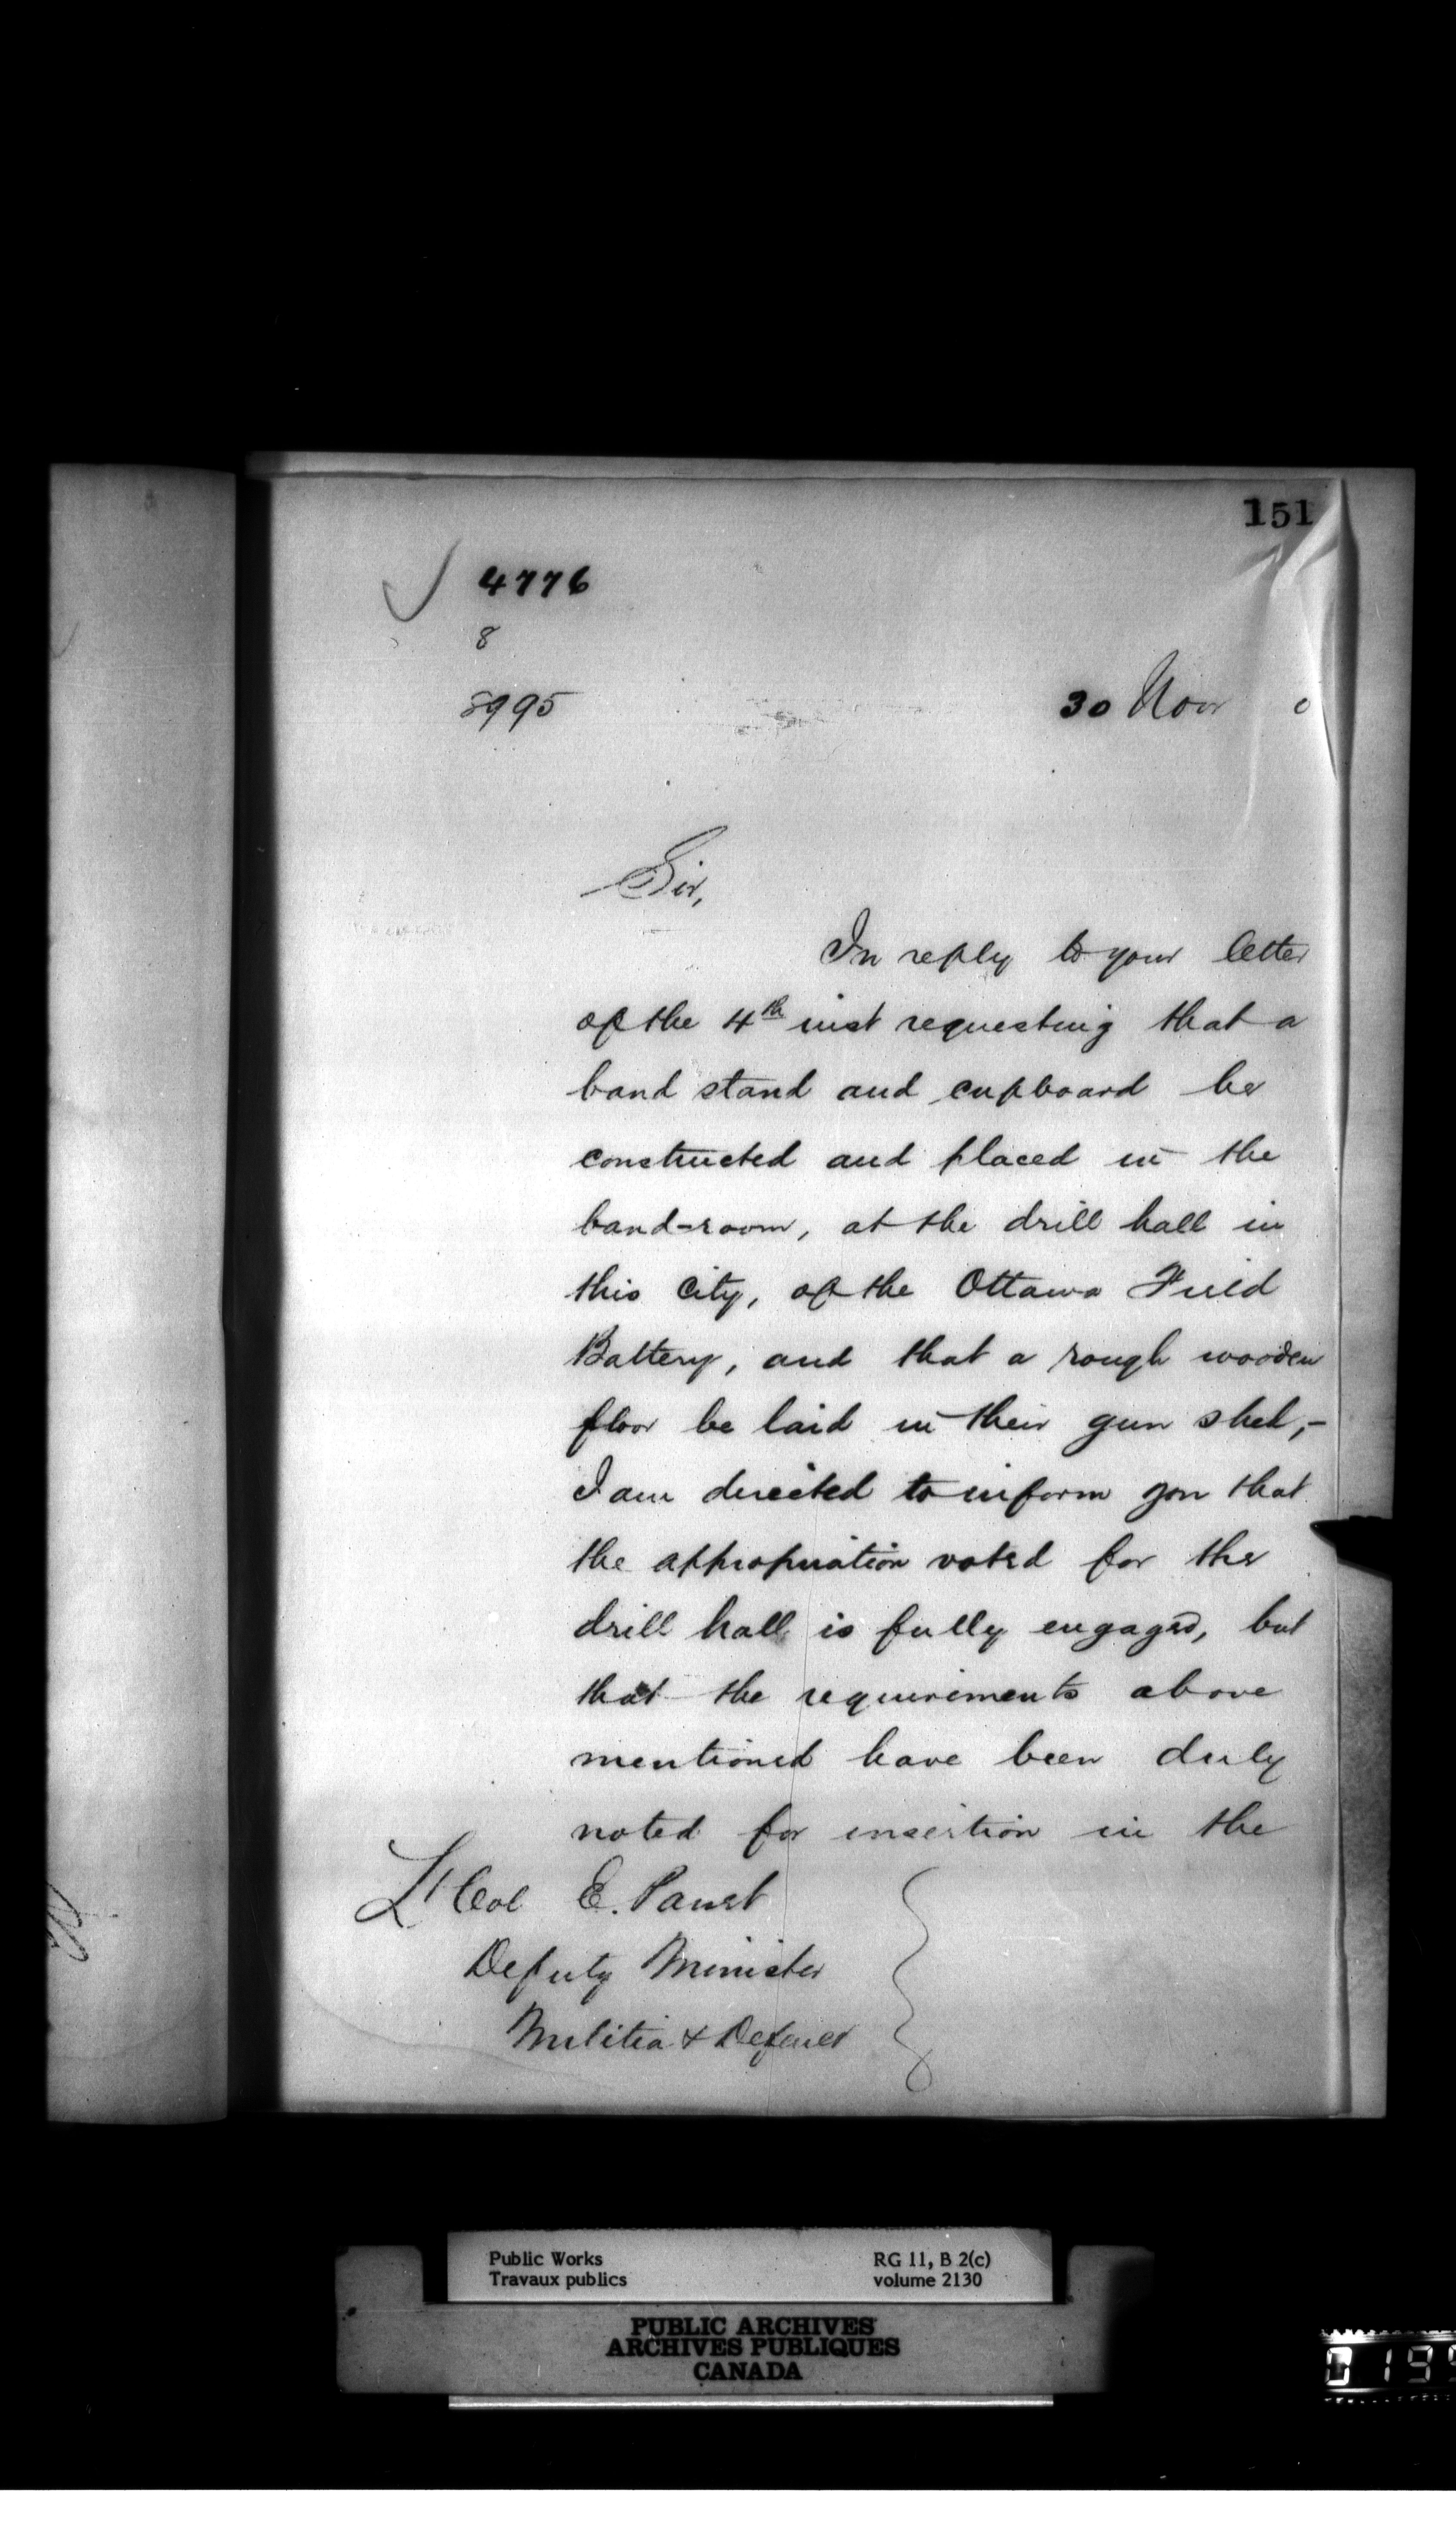 151
4776
8
8995
30 Novr 0
Sir,
In reply to your letter
of the 4th inst requesting that a
band stand and cupboard be
constructed and placed in the
band-room, at the drill hall in
this city, of the Ottawa Field
Battery, and that a rough wooden
floor be laid in their gun shed,-
I am directed to inform you that
the appropriation voted for the
drill hall is fully engaged, but
that the requirements above
mentioned have been duly
noted for insertion in the
Lt Col E. Panet
Deputy Minister
Militia & Defence
Public Works
Travaux publics
RG 11, B 2(c)
volume 2130
PUBLIC ARCHIVES
ARCHIVES PUBLIQUES
CANADA